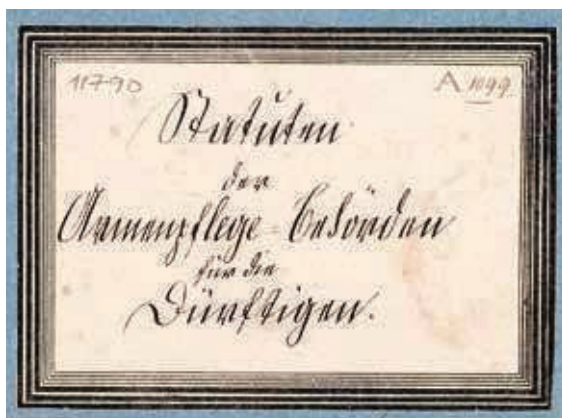 11790
A 1099
Statuten
der
Armenpflege-Behörden
für die
Dürftigen.